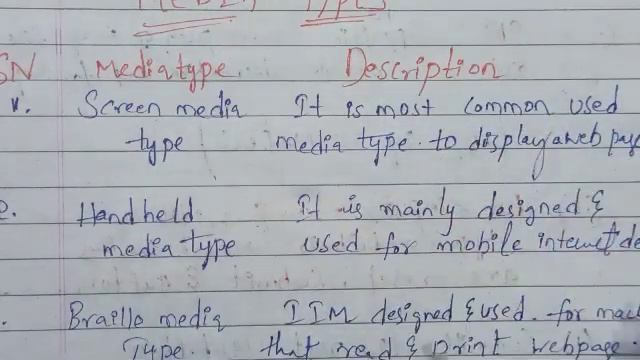 Types
SN Mediatype Description
v. Screen media It is most common used
type media type to display a web pag
Handheld It is mainly designed &
media type used for mobile internet de
Braillo media IIM designed & used for mac
Type that read & print webpage